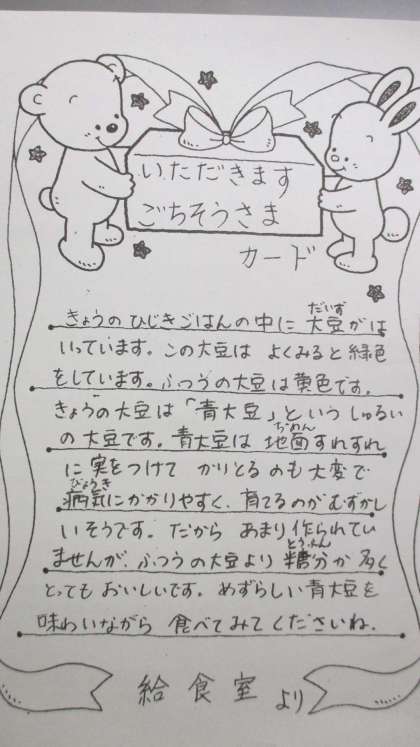 いただきます
ごちそうさま
カード
きょうのひじきごはんの中に 大豆がは
だいず
いっています。この大豆は よくみると緑色
をしています。ふつうの大豆は黄色です。
きょうの大豆は「青大豆」というしゅるい
の大豆です。青大豆は 地面すれすれ
じめん
に実をつけて かりとるのも大変で
病気にかかりやすく、育てるのがむずかし
びょうき
いそうです。だから あまり作られてい
ませんが、ふつうの大豆より糖分が多く
とうぶん
とってもおいしいです。めずらしい青大豆を
味わいながら 食べてみてくださいね。
給食室より